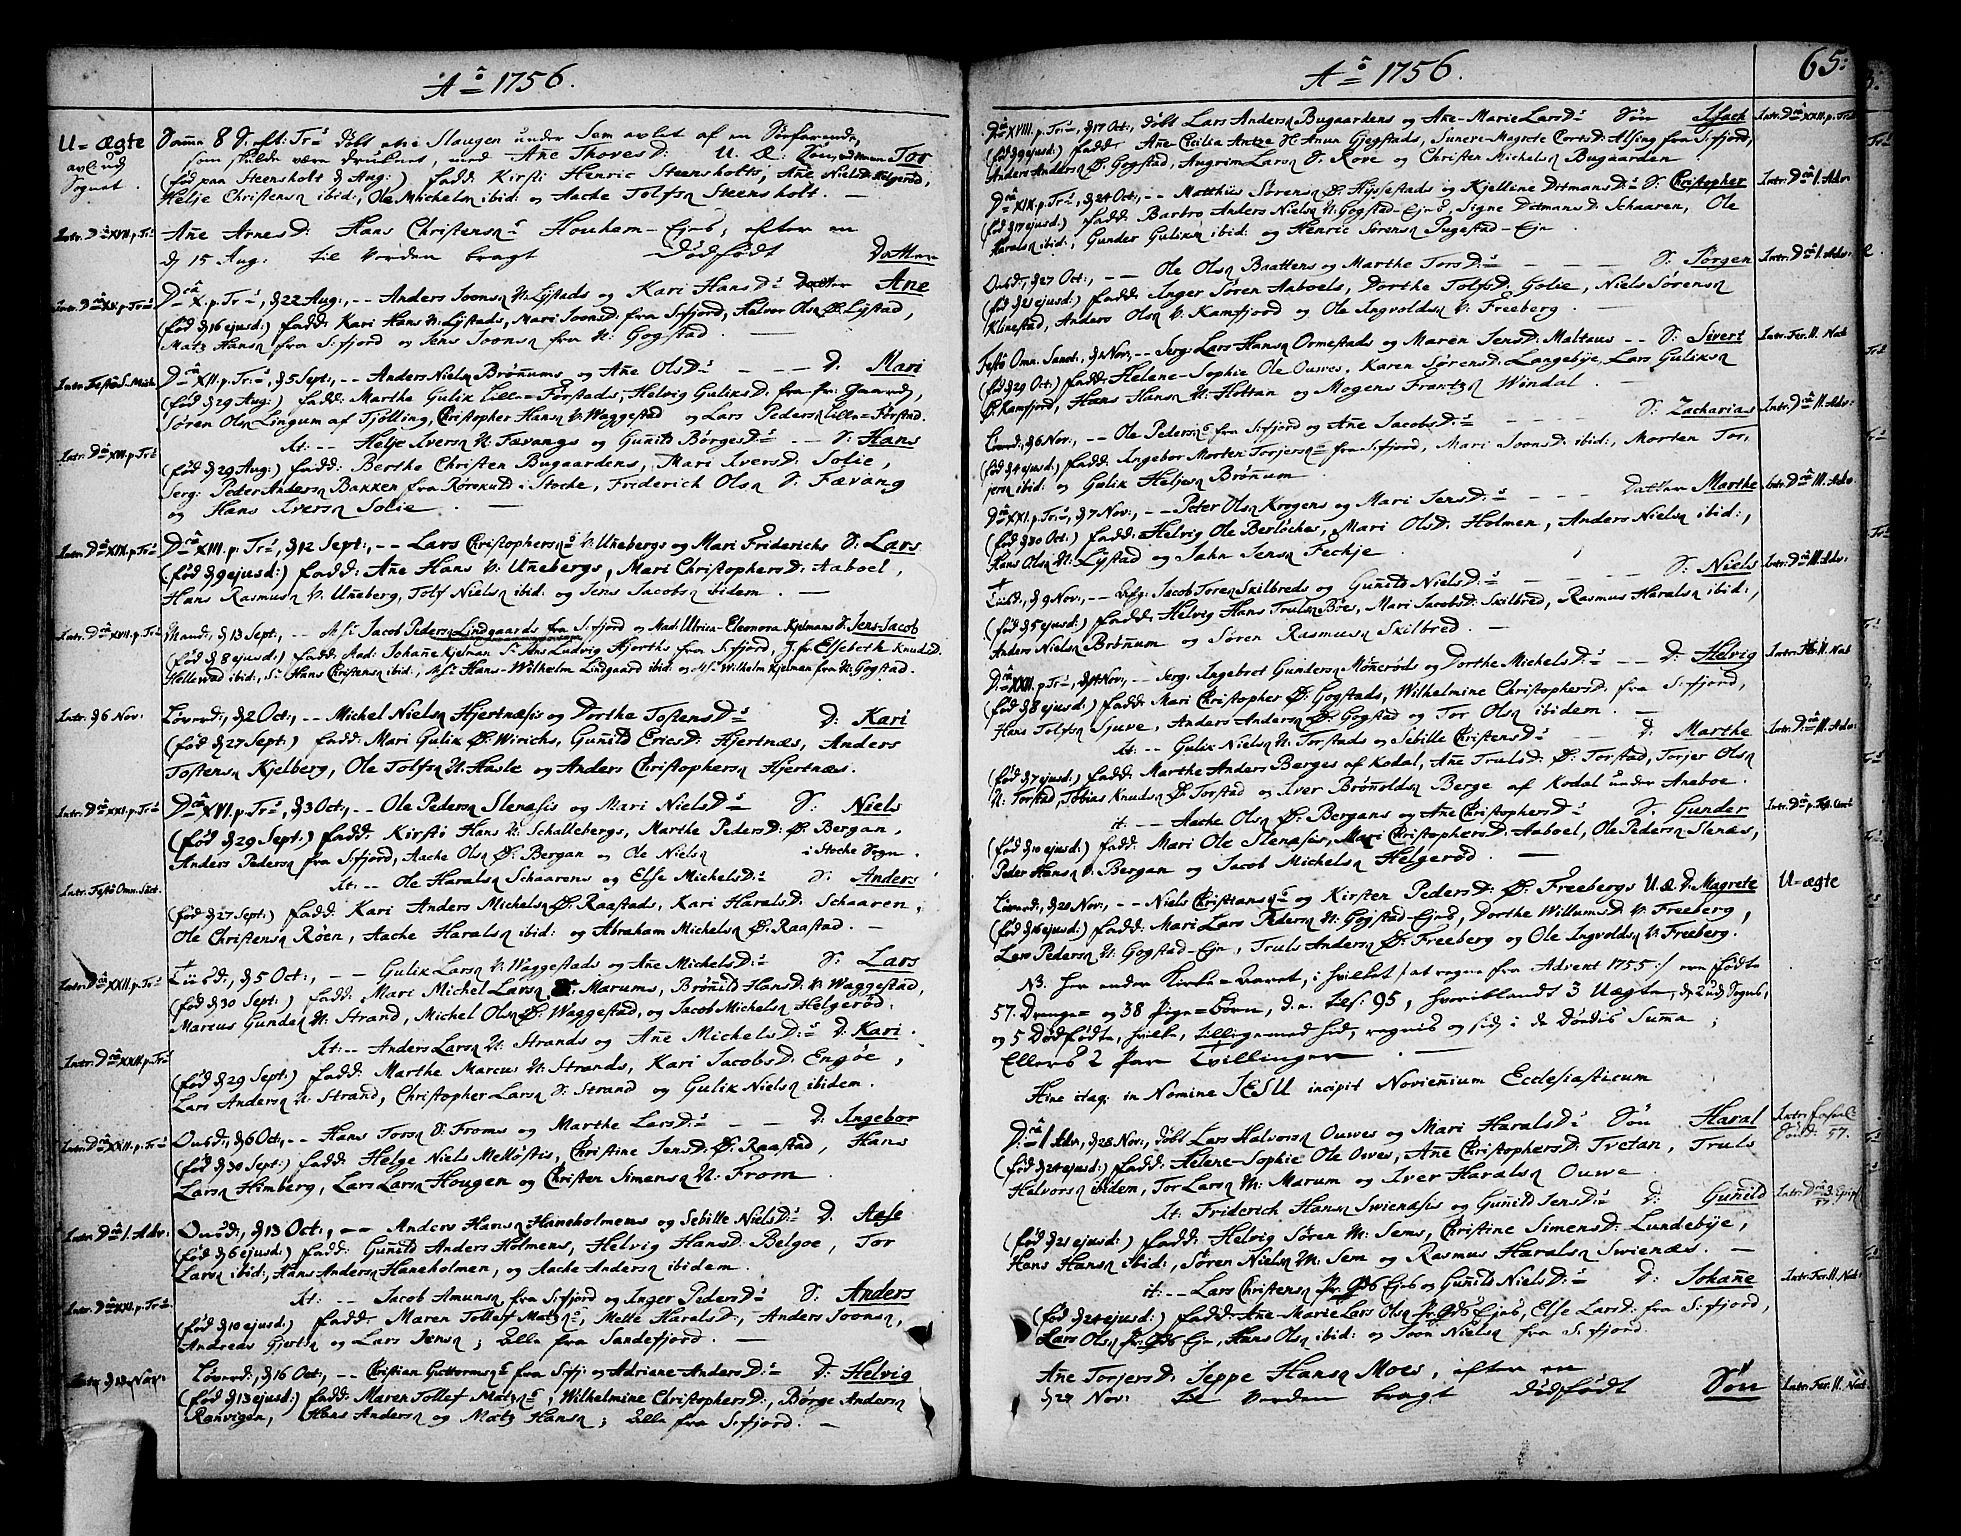 Ao 1756.
U-ægte
Somma 8 S. eft. Tr: døbt
avlet af en Sørfarende,
som skulde være druknet, med Añe ThovesD: U. Æ. Tor
Sognet.
(fød paa Steensholt d Aug:) fadd: Kirsti Henric Steensholts, Añe NielsD: Helgerød,
Helje Christensn ibid:, Ole Michelsn ibid: og Aache Tolfsn Steensholt. —
Intr. Dca XVII. p. Tr:
Añe ArnesD: Hans Christensns Houkam-Ejes, efter en
d 15 Aug. til Verden bragt Dødfødt Datter
Intr. Dca XV. p. Tr:
Dca X. p. Tr:, d 22 Aug:, -- Anders Joensn N: Lystads og Kari HansD: Datter Ane
(fød d 16 ejusd:) fadd: Kari Hans N: Lystads, Mari JoonsD: fra S:fjord, Halvor Olsn Ø: Lystad,
Matz Hansn fra S:fjord og Jens Joonsn fra N: Gogstad. —
Intr. Festo S. Mich:
Dca XII. p. Tr:, d 5 Sept:, -- Anders Nielsn Brønnums og Añe OlsD: - - - D: Mari
(fød d 29 Aug:) fadd: Marthe Gulik Lille-Førstads, Helvig GuliksD: fra Pr: Gaard,
Søren Olsn Lingum af Tjølling, Christopher Hansn V: Waggestad og Lars Pedersn Lille-Førstad.
Intr. Dca XIII. p. Tr:
It: -- Helje Iversn N: Fævangs og Guñild BørgesD: - - S: Hans
(fød d 29 Aug:) fadd: Berthe Christen Bugaardens, Mari IversD: Solie,
Serg: Peder Andersn Bakken fra Rørekuld i Stoche, Friderich Olsn S: Fævang
og Hans Iversn Solie. —
Intr. Dca XIX. p. Tr:
Dca XIII. p. Tr:, d 12 Sept:, -- Lars Christophersns V: Uñebergs og Mari Friderichs S: Lars
(fød d 9 ejusd:) fadd: Añe Hans V: Uñebergs, Mari ChristophersD: Aaboel,
Hans Rasmusn V: Uñeberg, Tolf Nielsn ibid: og Jens Jacobsn ibidem. —
Intr. Dca XVII. p. Tr:
Mand:, d 13 Sept:, -- Mr: Jacob Pedersn Lindgaards fra S:fjord og Mad: Ulrica-Eleonora Kjelmans S: Jens-Jacob
(fød d 8 ejusd:) fadd: Mad: Johañe Kjelman, Sr: Jens Ludvig Hjorths fra S:fjord, J.fr Elsebeth KnudsD:
Hellerød ibid:, Sr: Hans Christensn ibid:, Mr: Hans-Wilhelm Lindgaard ibid: og Mr: Wilhelm Kjelman fra N: Gogstad.
Intr. d 6 Nov:
Løverd:, d 2 Oct:, -- Michel Nielsn Hjertnæsis og Dorthe TostensD: D: Kari
(fød d 27 Sept:) fadd: Mari Gulik Ø: Wirichs, Guñild EricsD: Hjertnæs, Anders
Tostensn Kjelberg, Ole Tolfsn N: Hasle og Anders Christophersn Hjertnæs.
Intr. Dca XXI. p. Tr:
Dca XVI. p. Tr:, d 3 Oct:, -- Ole Pedersn Slenæsis og Mari NielsD: S: Niels
(fød d 29 Sept:) fadd: Kirsti Hans N: Schallebergs, Marthe PedersD: Ø: Bergan,
Anders Pedersn fra S:fjord, Aache Olsn Ø: Bergan og Ole Nielsn i Stoche Sogn.
Intr. Festo Omn: Sanct.
It: -- Ole Haralsn Schaarens og Else MichelsD: S: Anders
(fød d 27 Sept:) fadd: Kari Anders Michelsn Ø: Raastads, Kari HaralsD: Schaaren,
Ole Christensn Røen, Aache Haralsn ibid: og Abraham Michelsn Ø: Raastad. —
Intr. Dca XXII. p. Tr:
Tiisd:, d 5 Oct:, -- Gulik Larsn V: Waggestads og Añe MichelsD: S: Lars
(fød d 30 Sept:) fadd: Mari Michel Larsn Marums, Brønild HansD: V: Waggestad,
Marcus Gundersn N: Strand, Michel Olsn Ø: Waggestad, og Jacob Michelsn Helgerød.
Intr. Dca XXII. p. Tr:
It: -- Anders Larsn N: Strands og Añe MichelsD: D: Kari.
(fød d 29 Sept:) fadd: Marthe Marcus N: Strands, Kari JacobsD: Engøe,
Lars Andersn N: Strand, Christopher Larsn S: Strand og Gulik Nielsn ibidem.
Intr. Dca XXII. p. Tr:
Onsd:, d 6 Oct:, -- Hans Torsn S: Froms og Marthe LarsD: - - D: Ingebor
(fød d 30 Sept:) fadd: Helge Niels Melløstis, Christine JensD: Ø: Raastad, Hans
Larsn Himberg, Lars Larsn Hougen og Christen Simensn N: From.
Intr. Dca 1. Adv:
Onsd:, d 13 Oct:, -- Anders Hansn Haneholmens og Sebille NielsD: D: Aase
(fød d 6 ejusd:) fadd: Guñild Anders Holmens, Helvig HansD: Belgoe, Tor
Larsn ibid:, Hans Andersn Haneholmen, og Aache Andersn ibidem.
Intr. Dca XXI. p. Tr:
It: -- Jacob Amunsn fra S:fjord og Inger PedersD: S: Anders
(fød d 10 ejusd:) fadd: Maren Tollef Matzns, Mette HaralsD:, Anders Joonsn,
Andreas Gjertsn og Lars Jensn; alle fra Sandefjord. —
Intr. d 13 Nov:
Løverd:, d 16 Oct:, -- Christian Guttormsns fra S:fj: og Adriane AndersD: D: Helvig
(fød d 13 ejusd:) fadd: Maren Tollef Matzns, Wilhelmine ChristophersD:, Børge Andersn
Ranvigen, Hans Andersn og Matz Hansn; alle fra S:fjord. —
Ao 1756.
65:
Dca XVIII. p. Tr:, d 17 Oct:, døbt Lars Andersn Bugaardens og Ane-Marie LarsD: Søn Isach Intr. Dca XXII. p. Tr:
(fød d 9 ejusd:) fadd: Añe Cicilia Antze N: Anun Gjegstads, Sunere-Magrete CortsD: Alsing fra S:fjord,
Anders Andersn Ø: Gogstad, Augrim Larsn S: Rove og Christen Michelsn Bugaarden
Dca XIX. p. Tr:, d 24 Oct:, -- Matthiis Sørensn Ø: Hyssestads og Kjelline DitmansD: S: Christopher Intr. Dca 1. Adv:
(fød d 17 ejusd:) fadd: Barbro Anders Nielsn N: Gogstad-Ejes, Signe DitmansD: Schaaren, Ole
Haralsn ibid:, Gunder Guliksn ibid: og Henric Sørensn Jugestad-Eje.
Onsd:, d 27 Oct:, -- Ole Olsn Baattens og Marthe TorsD: - - S: Jørgen Intr. Dca 1. Adv:
(fød d 21 ejusd:) fadd: Inger Søren Aaboels, Dorthe TolfsD: Golie, Niels Sørensn
Klinestad, Anders Olsn V: Kamfjord og Ole Ingvoldsn V: Freeberg.
Festo Omn: Sanct:, d 1 Nov:, -- Serg: Lars Hansn Ormestads og Maren JensD: Maltaus -- S: Sivert Intr. Fer. II. Nat
(fød d 29 Oct:) fadd: Helene-Sophie Ole Ouwes, Karen SørensD: Langebye, Lars Guliksn
Ø: Kamfjord, Hans Hansn N: Hottan og Mogens Frantzn Windal.
Løverd:, d 6 Nov:, -- Ole Pedersns fra S:fjord og Añe JacobsD: S: Zacharias Intr. Dca II. Adv:
(fød d 4 ejusd:) fadd: Ingebor Morten Torjersns fra S:fjord, Mari JoonsD: ibid:, Morten Tor,
jersn ibid: og Gulik Heljesn Brønnum
Dca XXI. p. Tr:, d 7 Nov:, -- Peter Olsn Krogens og Mari JensD: - - - Datter Marthe Intr. Dca II. Adv
(fød d 30 Oct:) fadd: Helvig Ole Berløches, Mari OlsD: Holmen, Anders Nielsn ibid:,
Hans Olsn N: Lystad og Jahn Jensn Feckje.
Tiisd:, d 9 Nov:, -- Jacob Toresn Skilbreds og Guñild NielsD: - - - S: Niels Intr. Dca II. Adv:
(fød d 5 ejusd:) fadd: Helvig Hans Trulsn Bøes, Mari JacobsD: Skilbred, Rasmus Haralsn ibid:,
Anders Nielsn Brønnum og Søren Rasmusn Skilbred. —
Dca XXII. p. Tr:, d 14 Nov:, -- Serg: Ingebret Gundersn Mønerøds og Dorthe MichelsD: - - D: Helvig Intr. Fer. II. Nat
(fød d 8 ejusd:) fadd: Mari Christopher Ø: Gogstads, Wilhelmine ChristophersD: fra S:fjord,
Hans Tolfsn Sjuve, Anders Andersn Ø: Gogstad og Tor Olsn ibidem. —
It: -- Gulik Nielsn N: Torstads og Sebille ChristensD: - - D: Marthe Intr. Dca II. Adv:
(fød d 7 ejusd:) fadd: Marthe Anders Berges af Kodal, Añe TrulsD: Ø: Torstad, Torjer Olsn
N: Torstad, Tobias Knudsn Ø: Torstad og Iver Brønoldsn Berge af Kodal under Aneboe.
it: -- Aache Olsn Ø: Bergans og Añe ChristophersD: S: Gunder
(fød d 10 ejusd:) fadd: Mari Ole Slenæsis, Mari ChristophersD: Aaboel, Ole Pedersn Slenæs,
Peder Hansn V: Bergan og Jacob Michelsn Helgerød. —
Løverd:, d 20 Nov:, -- Niels Christiansns og Kirsten PedersD: Ø: Freebergs U. Æ. D: Magrete U-ægte
(fød d 16 ejusd:) fadd: Mari Lars Pedersn N: Gogstad-Ejes, Dorthe WillumsD: V: Freeberg,
Lars Pedersn N: Gogstad-Eje, Truls Andersn Ø: Freeberg og Ole Ingvoldsn V: Freeberg.
NB. her under Kirke-Aaret, i hvilket /: at regne fra Advent 1755 :/ ere fødte
57. Drenge- og 38 Pige-Børn, d. e. tils: 95, hvoriblandt 3 Uægte, d 2 udj Sognet,
og 5 Dødfødte, hvilke, tillige med hid, regnes og sidst i de Dødis Suma;
Ellers 2 Par Tvillinger.
Hine itaq: in Nomine JESU incipit Novieñium Ecclesiasticum
Dca 1 Adv:, d 28 Nov:, døbt Lars Halvorsn Ouwes og Mari HaralsD: Søn Haral
57.
(fød d 24 ejusd:) fadd: Helene-Sophie Ole Ouwes, Añe ChristophersD: Tvetan, Truls
Halvorsn ibidem, Tor Larsn M: Marum og Iver Haralsn Ouwe.
It: Friderich Hansn Swienæsis og Guñild JensD: D: Guñild Intr. Dca 3. Epiph
57.
(fød d 21 ejusd:) fadd: Helvig Søren M: Sems, Christine SimensD: Lundebye,
Hans Hansn ibid:, Søren Nielsn M: Sem og Rasmus Haralsn Swienæs. —
it: -- Lars Christensn Pr. Gds Ejes og Guñild NielsD: D: Johañe Intr. Fer. II. Nat:
(fød d 24 ejusd:) fadd: Ane-Marie Lars Olsn Pr. Gds Ejes, Else LarsD: fra S:fjord,
Lars Olsn Pr. Gds Eje, Hans Olsn ibid: og Joon Nielsn fra S:fjord.
Añe TorjersD: Jeppe Hansn Moes, efter en
d 28 Nov: til Verden bragt dødfødt Søn Intr. Fer. II. Nat.